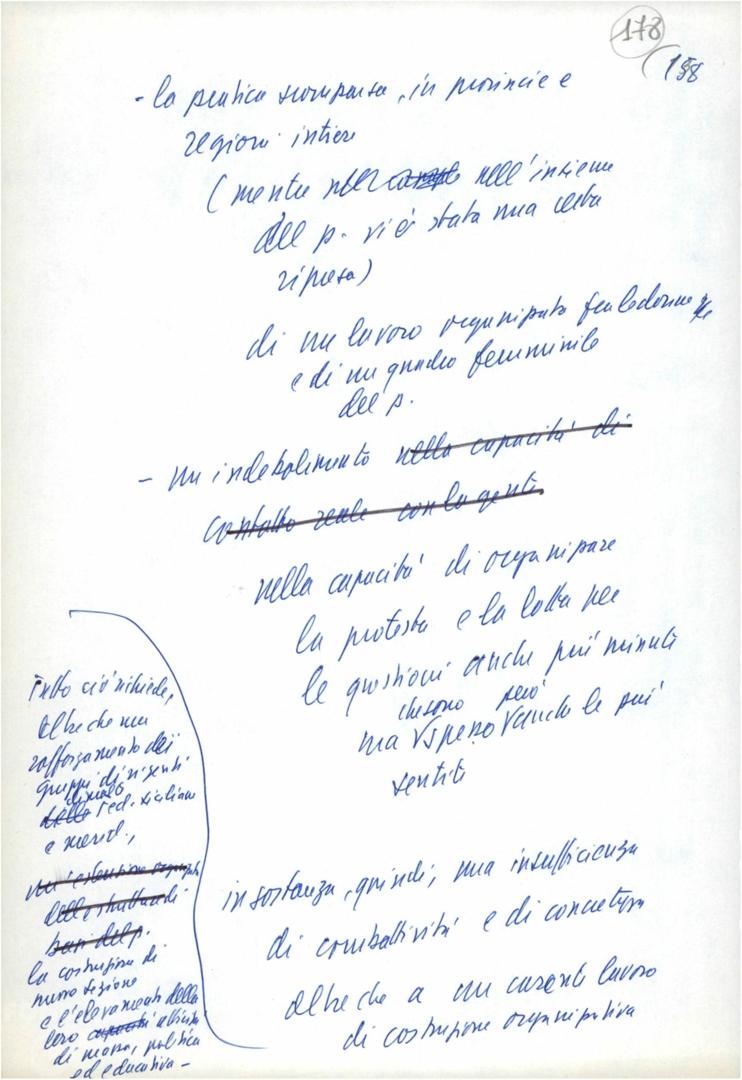 178
158
- la pratica scomparsa, in provincie e
regioni intiere
(mentre nell'insieme
del p. vi è stata una certa
ripresa)
di un lavoro organizzato fra le donne
e di un quadro femminile
del p.
- un indebolimento nella capacità di
contatto reale con la gente
nella capacità di organizzare
la protesta e la lotta per
le questioni anche più minute
che sono però
ma spesso anche le più
sentite
in sostanza, quindi, una insufficienza
di combattività e di concretezza
oltre che a un carente lavoro
di costruzione organizzativa
Tutto ciò richiede,
oltre che un
rafforzamento dei
gruppi dirigenti
di molte
delle Fed. siciliane
e merid.,
una estensione
delle strutture di
base del p.
la costruzione di
nuove sezione
e l'elevamento della
loro capacità attività
di massa, politica
ed educativa -